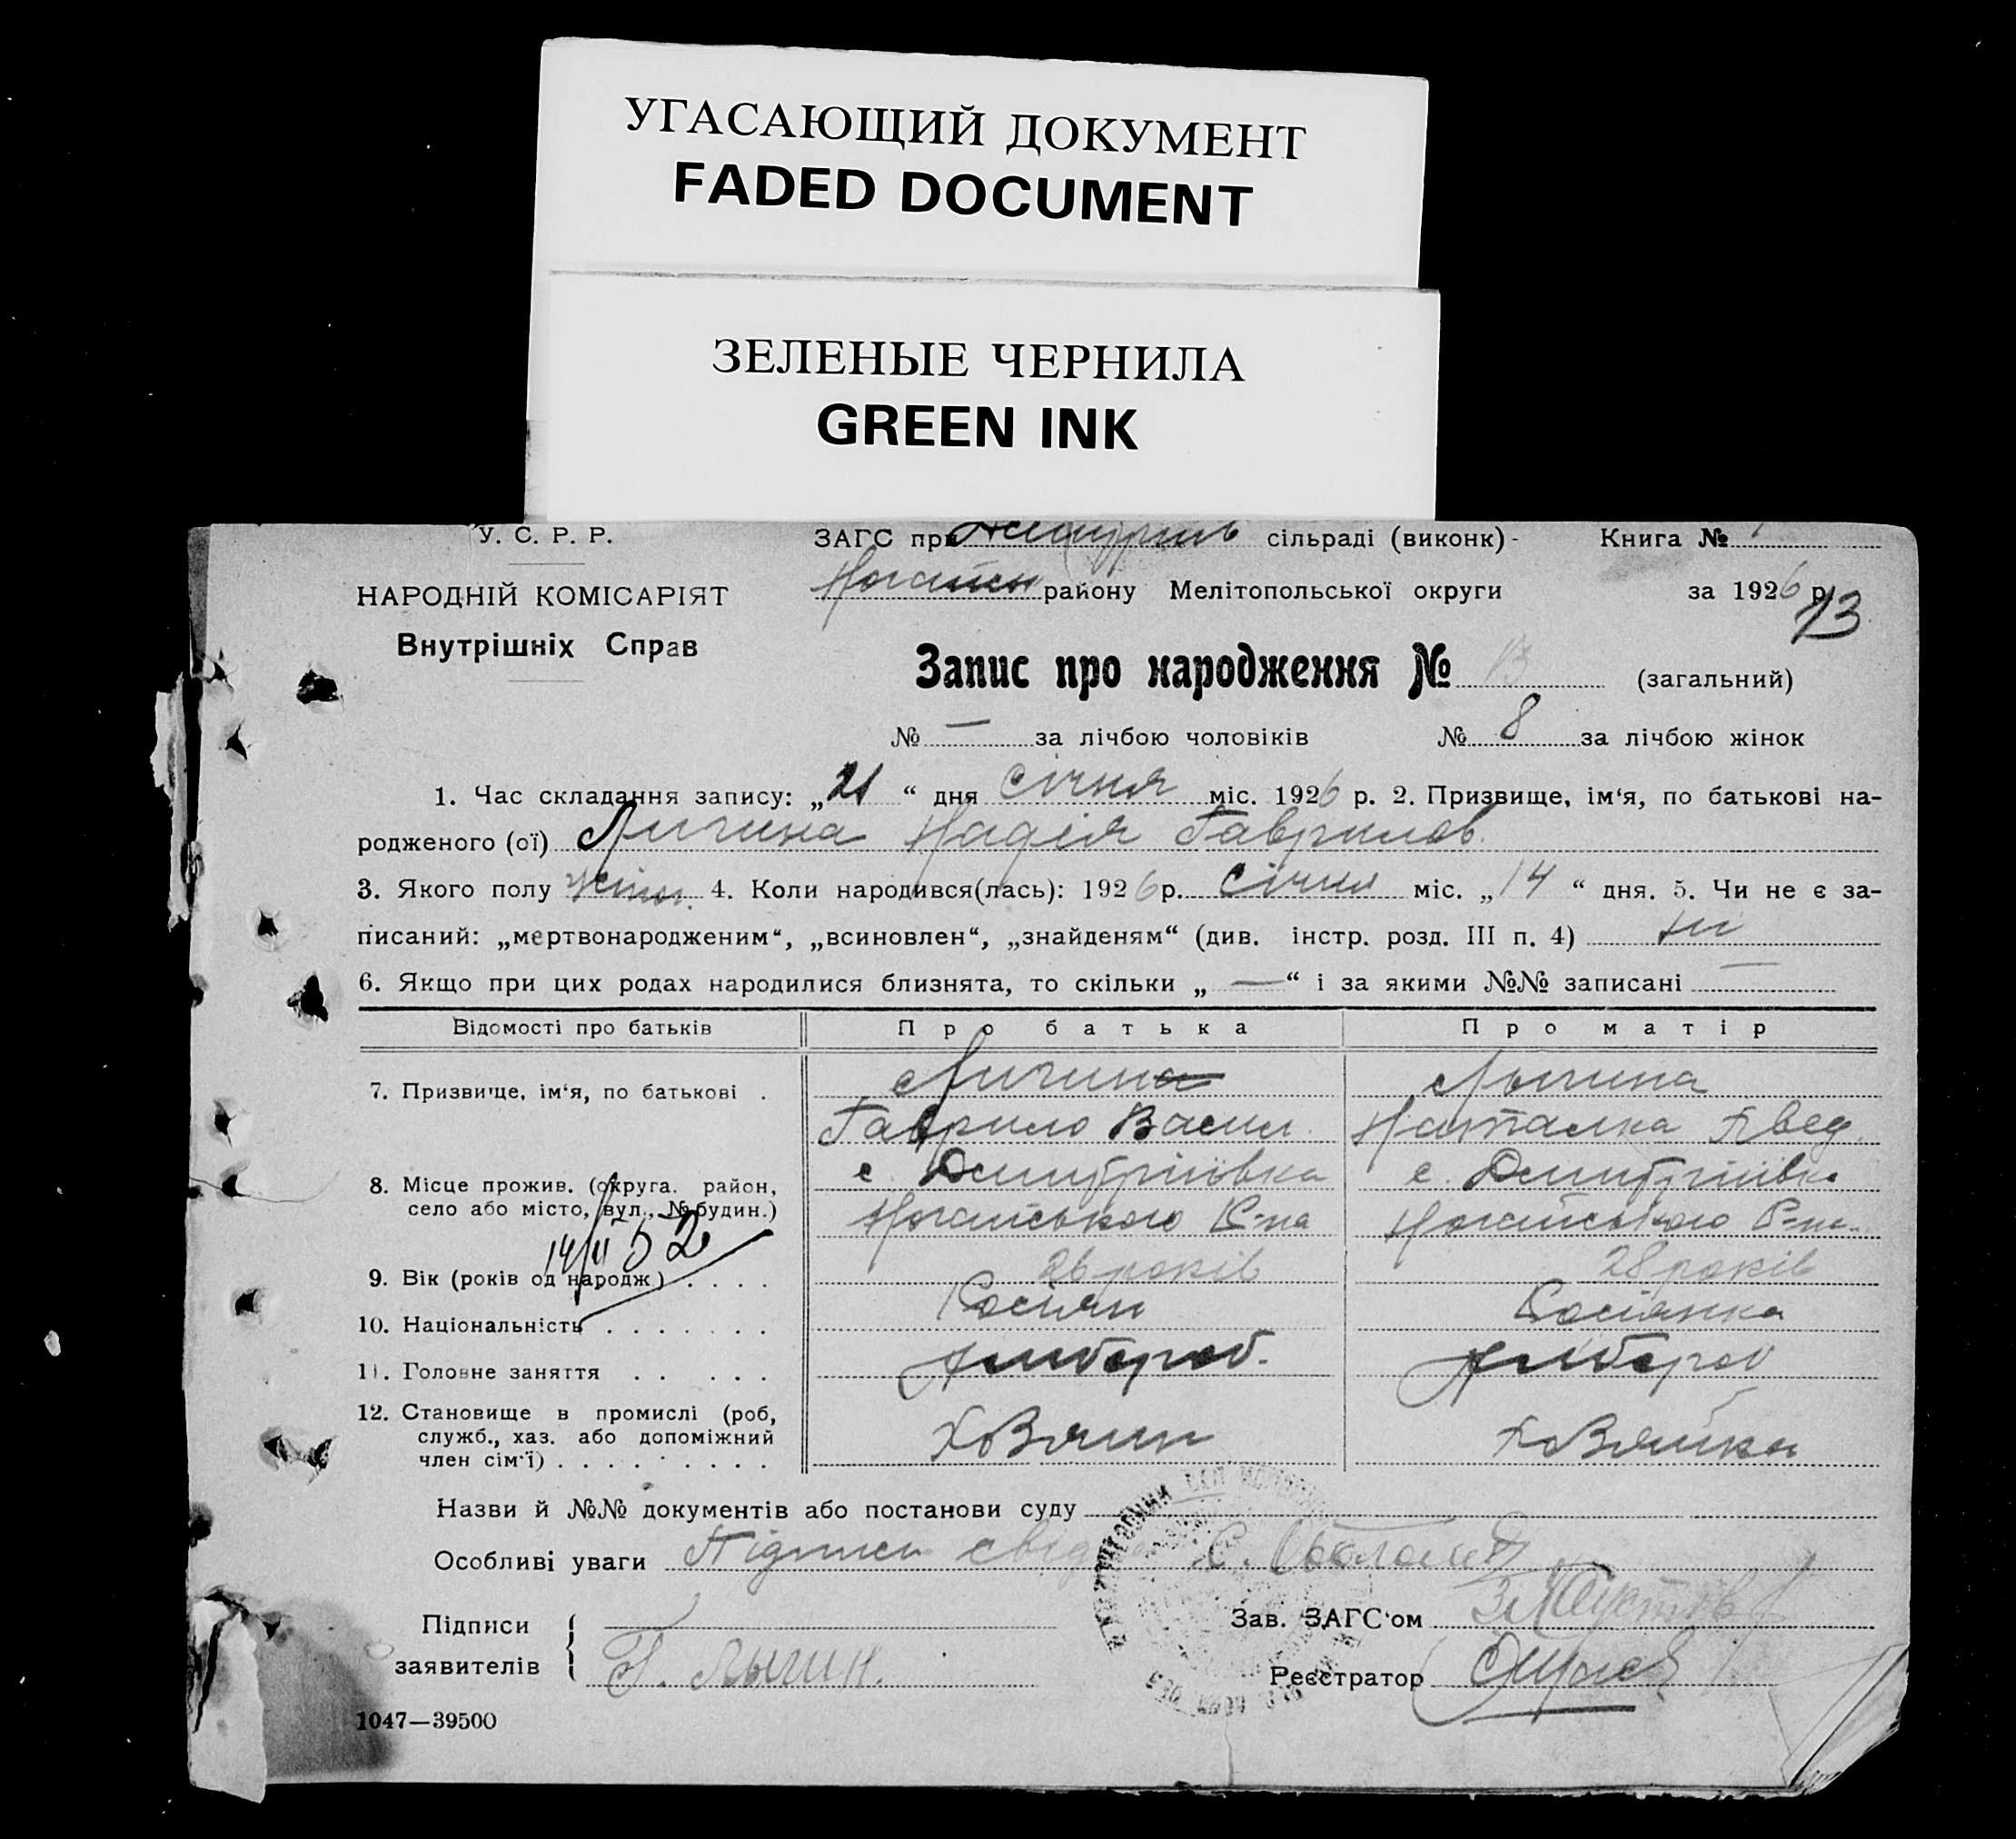 УГАСАЮЩИЙ ДОКУМЕНТ
FADED DOCUMENT
ЗЕЛЕНЫЕ ЧЕРНИЛА
GREEN INK
У. С. Р. Р.
НАРОДНІЙ КОМІСАРІЯТ
Внутрішніх Справ
ЗАГС при сільраді (виконк) - Книга №
району Мелітопольської округи за 1926 р.
13
Запис про народження № 13 (загальний)
№ — за лічбою чоловіків № 8 за лічбою жінок
1. Час складання запису: „21 “ дня січня міс. 1926 р. 2. Призвище, ім‘я, по батькові на-
родженого (ої) Лигина Надія Гаврилов.
3. Якого полу жіноч. 4. Коли народився(лась): 1926 р. Січня міс. „14 “ дня. 5. Чи не є за-
писаний: „мертвонародженим“, „всиновлен“, „знайденям“ (див. інстр. розд. III п. 4) ні
6. Якщо при цих родах народилися близнята, то скільки „ — “ і за якими №№ записані —
Відомості про батьків Про батька Про матір
7. Призвище, ім‘я, по батькові . Лигина Лыгина
Гаврило Васил. Наталка
8. Місце прожив. (округа. район, с. Дмитріївка с. Дмитріївка
село або місто, вул., № будин.) Ногайського Р-на Ногайського Р-на
14/II 52
9. Вік (років од народж.) . . . . 26 років 28 років
10. Національність . . . . . . . Росіян Росіянка
11. Головне заняття . . . . . Хлібороб. Хлібороб
12. Становище в промислі (роб,
служб., хаз. або допоміжний
член сім‘ї) . . . . . . . . . Хозяин Хозяйка
Назви й №№ документів або постанови суду
Особливі уваги Підписи
Підписи Зав. ЗАГС‘ом
заявителів Г. Лыгин. Реєстратор
1047—39500